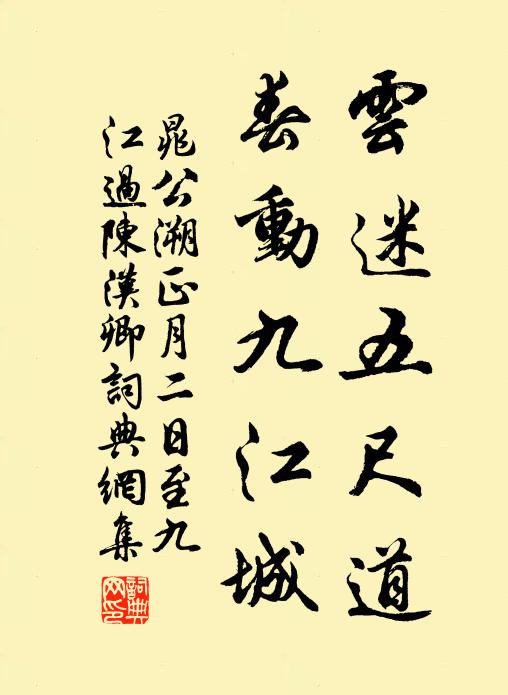 雲迷五尺道
春動九江城
晁公溯正月二日至九
江過陳漢卿詞典網集
詞典
网印